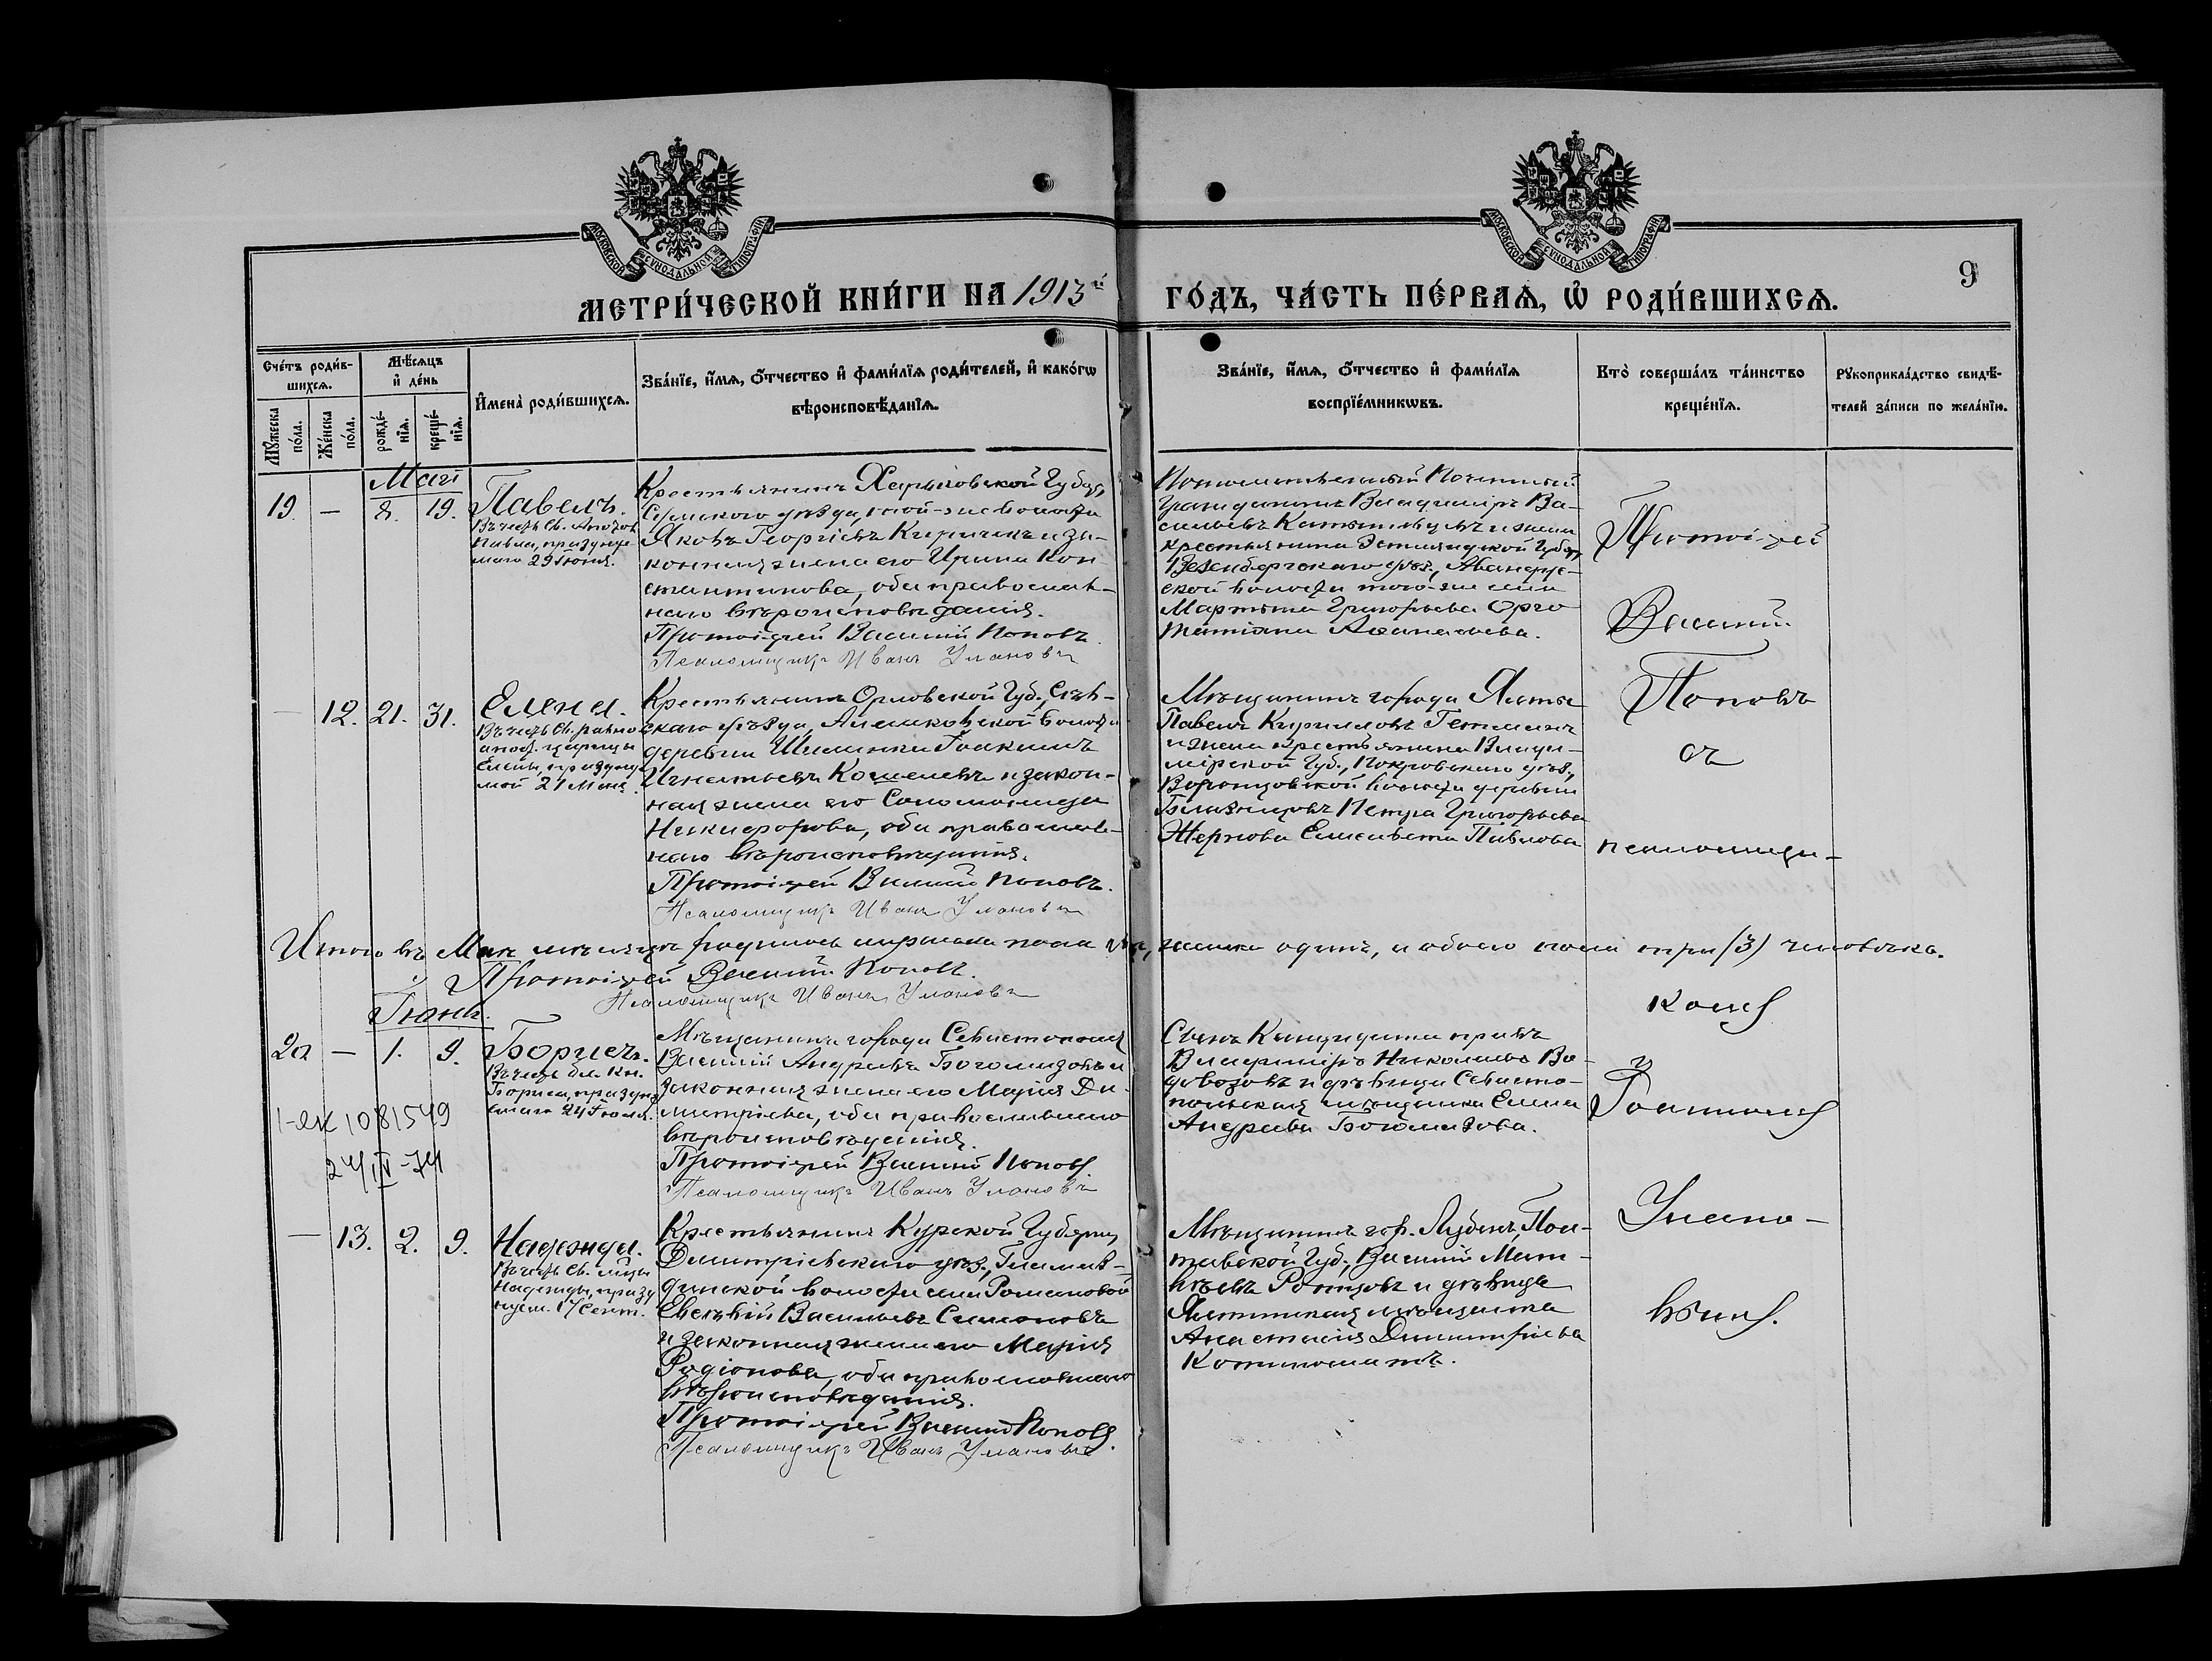 МОСКОВСКОЙ СѴНОДАЛЬНОЙ ТИПОГРАФІИ.
МОСКОВСКОЙ СѴНОДАЛЬНОЙ ТИПОГРАФІИ.
9
МЕТРИ́ЧЕСКОЙ КНИ́ГИ НА 1913й ГО́ДЪ, ЧА́СТЬ ПЕ́РВАѦ, Ѡ҆ РОДИ́ВШИХСѦ.
Сче́тъ роди́в-
шихсѧ.
Мꙋ́жеска
по́ла.
Же́нска
по́ла.
Мѣ́сѧцъ
и҆ де́нь
рожде́-
нїѧ.
креще́-
нїѧ.
И҆мена̀ роди́вшихсѧ.
Зва́нїе, и҆́мѧ, ѻ҆́тчество и҆ фами́лїѧ роди́телей, и҆ како́гѡ
вѣроисповѣ́данїѧ.
Зва́нїе, и҆́мѧ, ѻ҆́тчество и҆ фами́лїѧ
воспрїе́мникѡвъ.
Кто̀ соверша́лъ та́инство
креще́нїѧ.
Рꙋкоприкла́дство свидѣ́-
телей за́писи по жела́нїю.
Май
19. — 8. 19.
Павелъ.
Въ честь Св. Апостола
Павла, празднуе-
маго 29 Іюня.
Крестьянинъ Харьковской Губер.,
Сумскаго уѣзда, той-же волости
Яковъ Георгіевъ Киричекъ и за-
конная жена его Ирина Кон-
стантинова, оба православ-
наго вѣроисповѣданія.
Протоіерей Василій Поповъ.
Псаломщикъ Иванъ Улановъ
Потомственный Почетный
Гражданинъ Владиміръ Ва-
сильевъ и жена
крестьянина Эстляндской Губер.
Везенбергскаго уѣз.,
ской волости того-же
Мартына Григорьева Орго
Татіана Аѳанасьева.
Протоіерей
Василій
Поповъ
съ
псаломщи-
комъ
Іоанномъ
Улано-
вымъ.
— 12. 21. 31.
Елена.
Въ честь Св. равно
апос. царицы
Елены, празднуе
мой 21 Мая.
Крестьянинъ Орловской Губ., Сѣв-
скаго уѣзда, волости
деревни Шилинки Іоакимъ
Игнатьевъ Кошелевъ и закон-
ная жена его Соломонида
Никифорова, оба православ-
наго вѣроисповѣданія.
Протоіерей Василій Поповъ.
Псаломщикъ Иванъ Улановъ
Мѣщанинъ города Ялты
Павелъ Кирилловъ Гетманъ
и жена крестьянина Влади-
мірской Губ., Покровскаго уѣз.,
Воронцовской волости деревни
Петра Григорьева
Жернова Елисавета Павлова
Итого въ Маѣ мѣсяцѣ родилось мужеска пола два, женска одинъ, а обоего пола три (3) человѣка.
Протоіерей Василій Поповъ.
Псаломщикъ Иванъ Улановъ
Іюнь.
20 — 1. 9.
1-ЕК 1081549
24/IV-74
Борисъ.
Въ честь бл. Кн.
Бориса, праздну
емаго 24 Іюля.
Мѣщанинъ города Севастополя
Василій Андреевъ Богомазовъ и
законная жена его Марія Ди-
митріева, оба православнаго
вѣроисповѣданія.
Протоіерей Василій Поповъ.
Псаломщикъ Иванъ Улановъ
Сынъ Кандидата правъ
Владиміръ Николаевъ Во-
довозовъ и дѣвица Севасто-
польская мѣщанка Елена
Андреева Богомазова.
— 13. 2. 9.
Надежда.
Въ честь Св. мцы
Надежды, празд
нуем. 17 Сент.
Крестьянинъ Курской Губерніи,
Дмитріевскаго уѣз.,
волости села Романовой
Евсѣвій Васильевъ Симоновъ
и законная жена его Марія
Родіонова, оба православнаго
вѣроисповѣданія.
Протоіерей Василій Поповъ.
Псаломщикъ Иванъ Улановъ
Мѣщанинъ гор. Лубенъ, Пол-
тавской Губ., Василій Мат-
вѣевъ и дѣвица
Ялтинская мѣщанка
Анастасія Димитріева